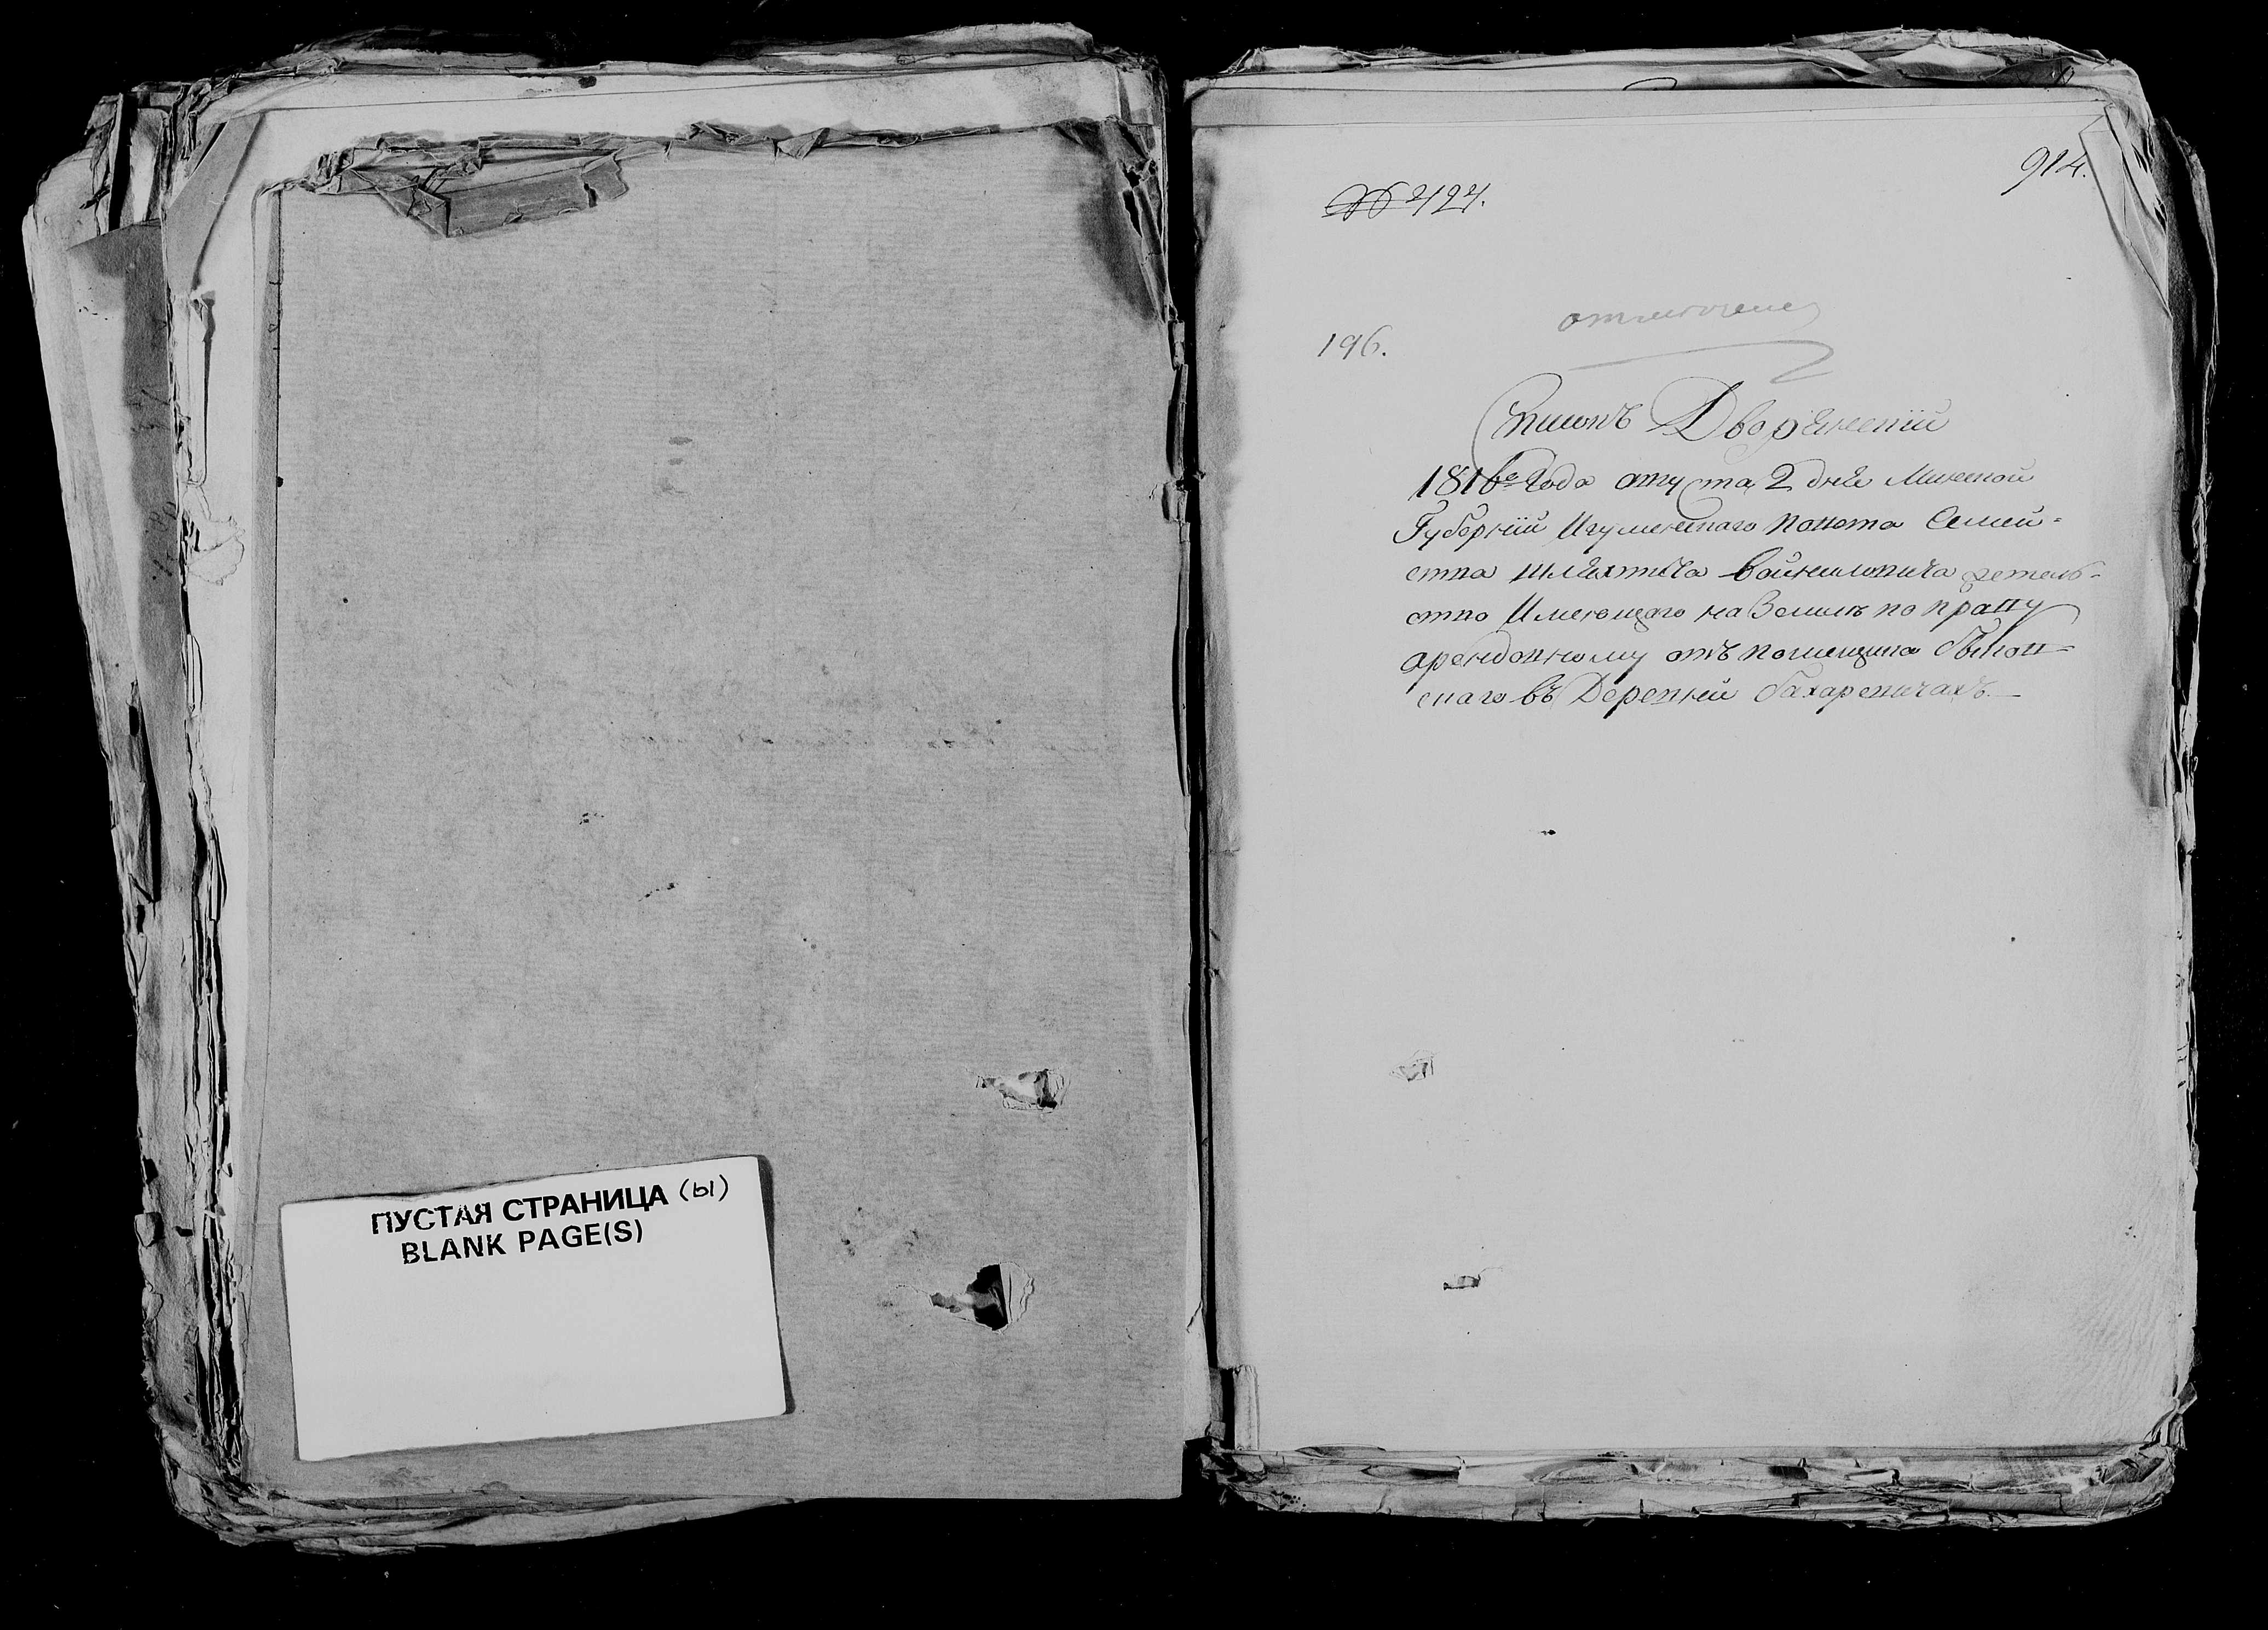 ПУСТАЯ СТРАНИЦА (ы)
BLANK PAGE(S)
914.
№ 424.
196.
Списокъ Дворянскій
1816го Года августа 2 дня Минской
Губернiи Игуменскаго повета Семей-
ства шляхтича Войниловича жетель-
ство Имеющаго на Земле по праву
арендовному отъ помещика
скаго въ Деревни Бахаревичахъ